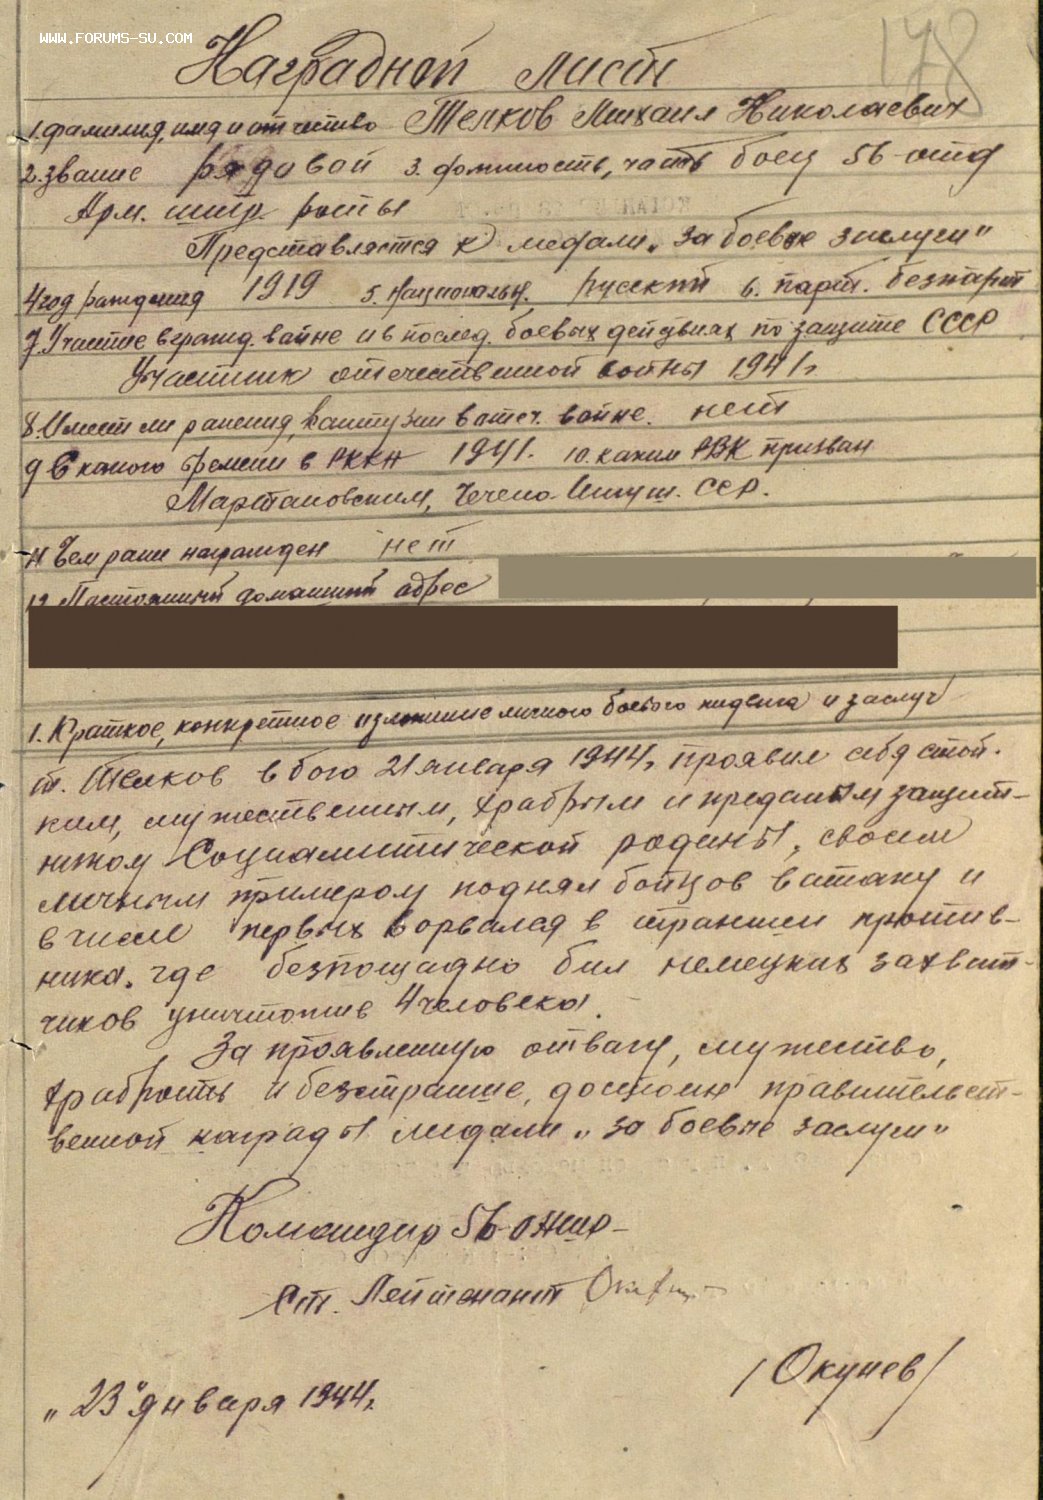 WWW.FORUMS-SU.COM
178
Наградной лист
1. фамилия, имя и отчество Телков Михаил Николаевич
2. звание рядовой 3. должность, часть боец 56 отд
Арм. штр. роты
Представляется к медали „За боевые заслуги"
4 год рождения 1919 5. Национальн. русский 6. парт. безпарт
7. Участие в гражд. войне и в послед. боевых действиях по защите СССР
Участник отечественной войны 1941 г.
8. Имеет ли ранения, контузии в отеч. войне. нет
9 С какого времени в РККА 1941. 10. каким РВК призван
Мартановским, Чечено-Ингуш. ССР.
11 Чем ранее награжден нет
12. Постоянный домашний адрес
1. Краткое, конкретное изложение личного боевого подвига и заслуг
т. Телков в бою 21 января 1944 г. проявил себя стой-
ким, мужественным, храбрым и преданным защит-
ником Социалистической родины, своим
личным примером поднял бойцов в атаку и
в числе первых ворвался в траншеи против-
ника. где безпощадно бил немецких захват-
чиков уничтожив 4 человека.
За проявленную отвагу, мужество,
храбрость и безстрашие, достоин правительст-
венной награды медали „за боевые заслуги"
Командир 56 ОАШР
Ст. Лейтенант
/Окунев/
„23" января 1944 г.